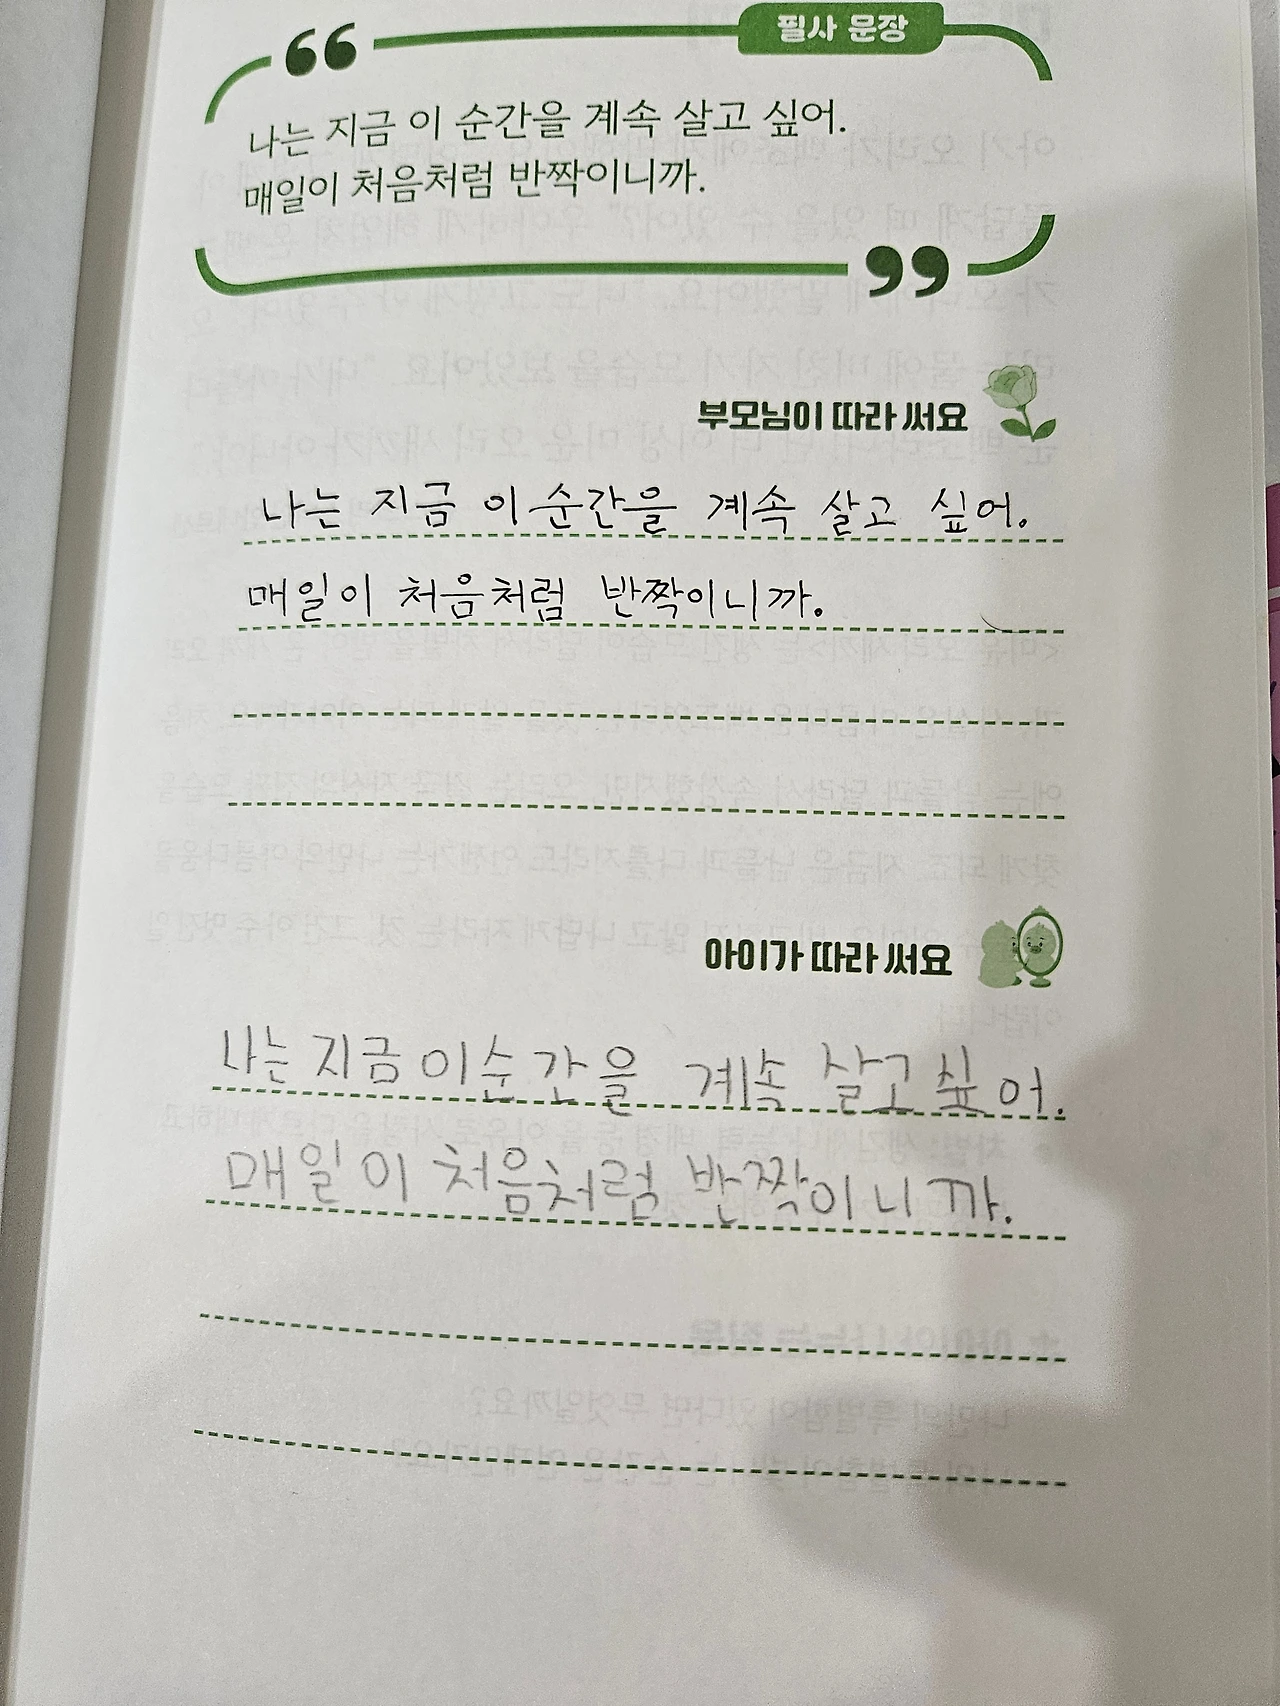 필사 문장
나는 지금 이 순간을 계속 살고 싶어.
매일이 처음처럼 반짝이니까.
부모님이 따라 써요
나는 지금 이 순간을 계속 살고 싶어.
매일이 처음처럼 반짝이니까.
아이가 따라 써요
나는 지금 이 순간을 계속 살고 싶어.
매일이 처음처럼 반짝이니까.